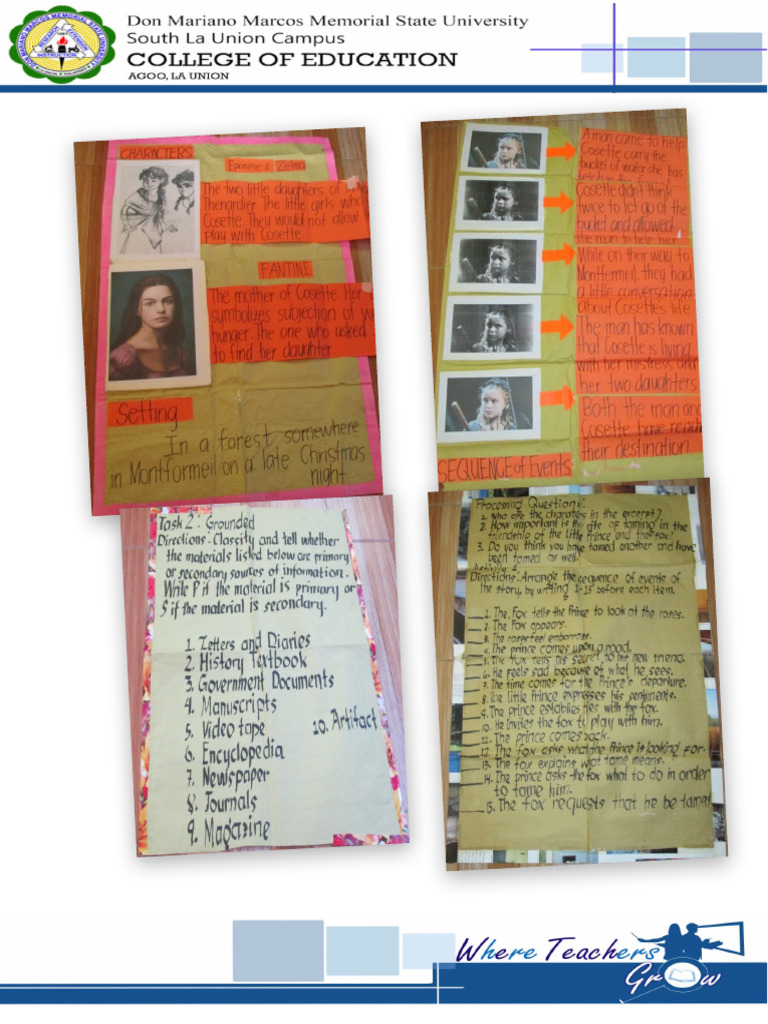 Don Mariano Marcos Memorial State University
South La Union Campus
COLLEGE OF EDUCATION
AGOO, LA UNION
CHARACTERS
Eponine & Zelma
The two little daughters of
Thenardier. The little girls
Cosette. They would not allow
play with Cosette
FANTINE
The mother of Cosette. Her
symbolizes subjection of
hunger. The one who asked
to find her daughter
Setting
In a forest somewhere
in Montformeil on a late Christmas
night
A man came to help
Cosette carry the
bucket of water she has
Cosette didn't think
twice to let go of the
bucket and allowed
the man to help her
While on their way to
Montfermeil, they had
a little conversation
about Cosette's life
The man has known
that Cosette is living
with her mistress, and
her two daughters
Both the man and
Cosette have
their destination.
SEQUENCE of Events
Task 2: Grounded
Directions: Classify and tell whether
the materials listed below are primary
or secondary sources of information.
Write P if the material is primary or
S if the material is secondary.
1. Letters and Diaries
2. History Textbook
3. Government Documents
4. Manuscripts
5. Video tape
6. Encyclopedia
7. Newspaper
8. Journals
9. Magazine
10. Artifact
Processing Question:
1. Who are the charates in the excerpt?
2. How important is the rite of taming in the
friendship of the little Prince and the fox?
3. Do you think you have tamed another and have
been tamed as well?
Directions: Arrange the sequence of events of
the story, by writing 1-15 before each item.
1. The Fox tells the Prince to look at the roses.
2. The Fox appears.
3. The roses feel embarrass.
4. The prince comes upon a road.
5. The fox tells his secret to his new friend.
6. He feels sad because of what he sees.
7. The time comes for the Prince's departure.
8. The little Prince expresses his sentiments.
9. The Prince establishes ties with the fox.
10. He invites the fox to play with him.
11. The prince comes back.
12. The fox asks what the Prince is looking for.
13. The fox explains what tame means.
14. The prince asks the fox what to do in order
to tame him.
15. The fox requests that he be tamed
Where Teachers
Grow